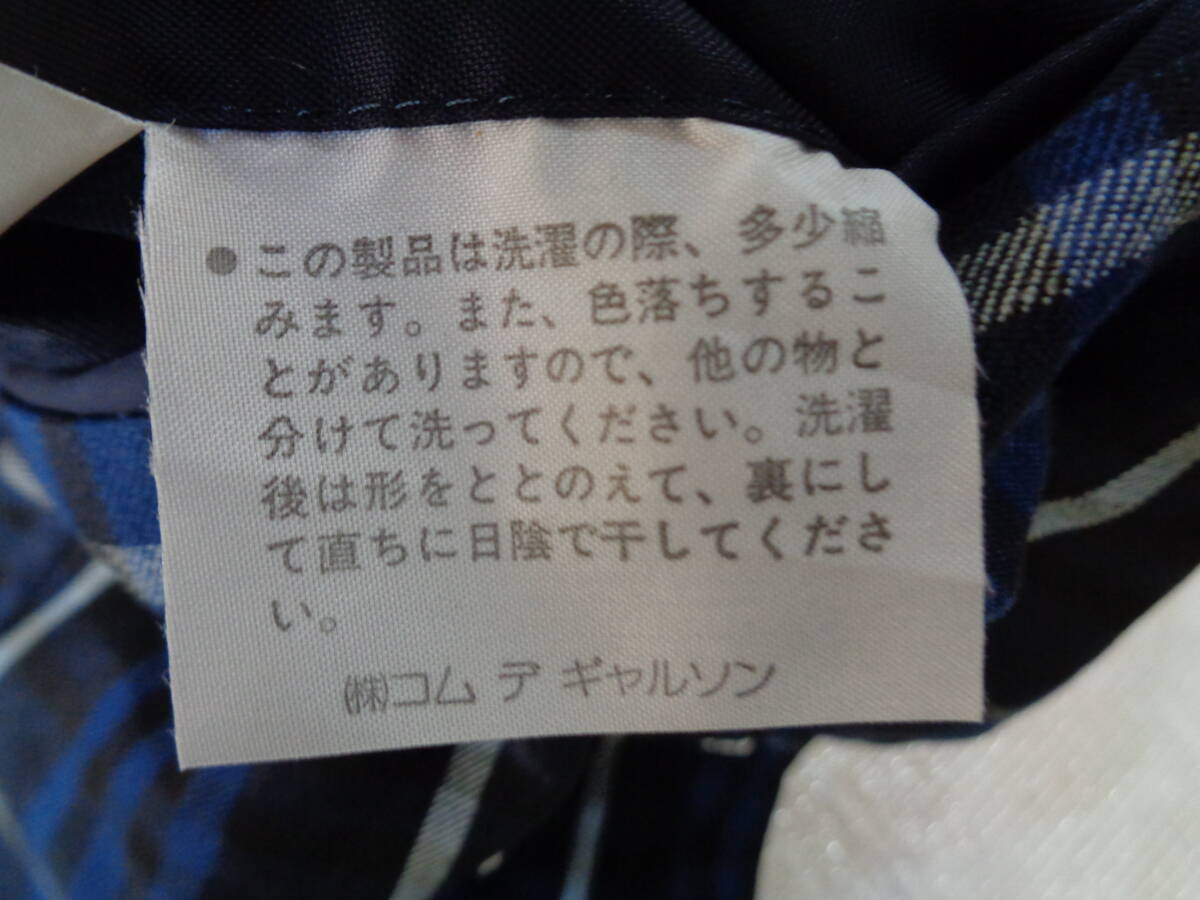 ●この製品は洗濯の際、多少縮
みます。また、色落ちするこ
とがありますので、他の物と
分けて洗ってください。洗濯
後は形をととのえて、裏にし
て直ちに日陰で干してくださ
い。
㈱コム デ ギャルソン